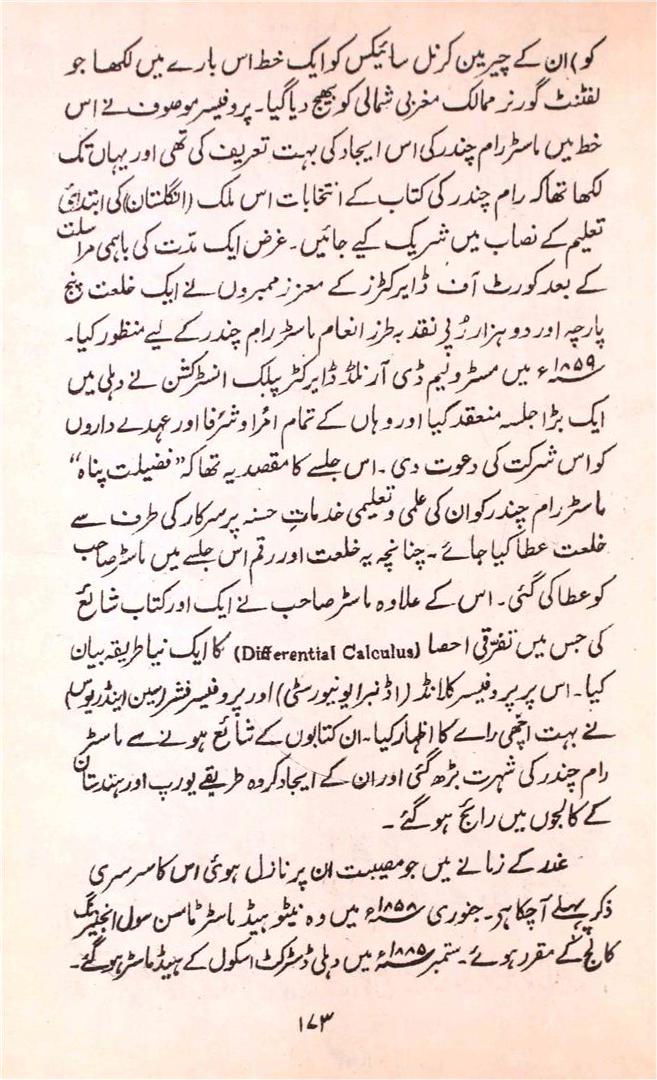 کو) ان کے چیرمین کرنل سائیکس کو ایک خط اس بارے میں لکھا جو
لفٹنٹ گورنر ممالک مغربی شمالی کو بھیج دیا گیا۔ پروفیسر موصوف نے اس
خط میں ماسٹر رام چندر کی اس ایجاد کی بہت تعریف کی تھی اور یہاں تک
لکھا تھا کہ رام چندر کی کتاب کے انتخابات اس ملک (انگلستان) کی ابتدائی
تعلیم کے نصاب میں شریک کیے جائیں۔ غرض ایک مدّت کی باہمی مراسلت
کے بعد کورٹ آف ڈایرکٹرز کے معزز ممبروں نے ایک خلعت پنج
پارچہ اور دو ہزار رُپے نقد بہ طرز انعام ماسٹر رام چندر کے لیے منظور کیا۔
۱۸۵۹ء میں مسٹر ولیم ڈی آرنلڈ ڈایرکٹر پبلک انسٹرکشن نے دہلی میں
ایک بڑا جلسہ منعقد کیا اور وہاں کے تمام امُرا و شرُفا اور عہدے داروں
کو اس شرکت کی دعوت دی۔ اس جلسے کا مقصد یہ تھا کہ ”فضیلت پناہ“
ماسٹر رام چندر کو ان کی علمی و تعلیمی خدماتِ حسنہ پر سرکار کی طرف سے
خلعت عطا کیا جائے۔ چنانچہ یہ خلعت اور رقم اس جلسے میں ماسٹر صاحب
کو عطا کی گئی۔ اس کے علاوہ ماسٹر صاحب نے ایک اور کتاب شائع
کی جس میں تفرّقی احصا (Differential Calculus) کا ایک نیا طریقہ بیان
کیا۔ اس پر پروفیسر کلانڈ (اڈنبرا یونیورسٹی) اور پروفیسر فشر (سین اینڈریوس)
نے بہت اچھی راے کا اظہار کیا۔ ان کتابوں کے شائع ہونے سے ماسٹر
رام چندر کی شہرت بڑھ گئی اور ان کے ایجاد کردہ طریقے یورپ اور ہندستان
کے کالجوں میں رائج ہوگئے۔
غدر کے زمانے میں جو مصیبت ان پر نازل ہوئی اس کا سرسری
ذکر پہلے آچکا ہر۔ جنوری ۱۸۵۸ء میں وہ نیٹو ہیڈ ماسٹر ٹامسن سول انجنیرنگ
کالج کے مقرر ہوئے۔ ستمبر ۱۸۸۵ء میں دہلی ڈسٹرکٹ اسکول کے ہیڈ ماسٹر ہوگئے۔
۱۷۳